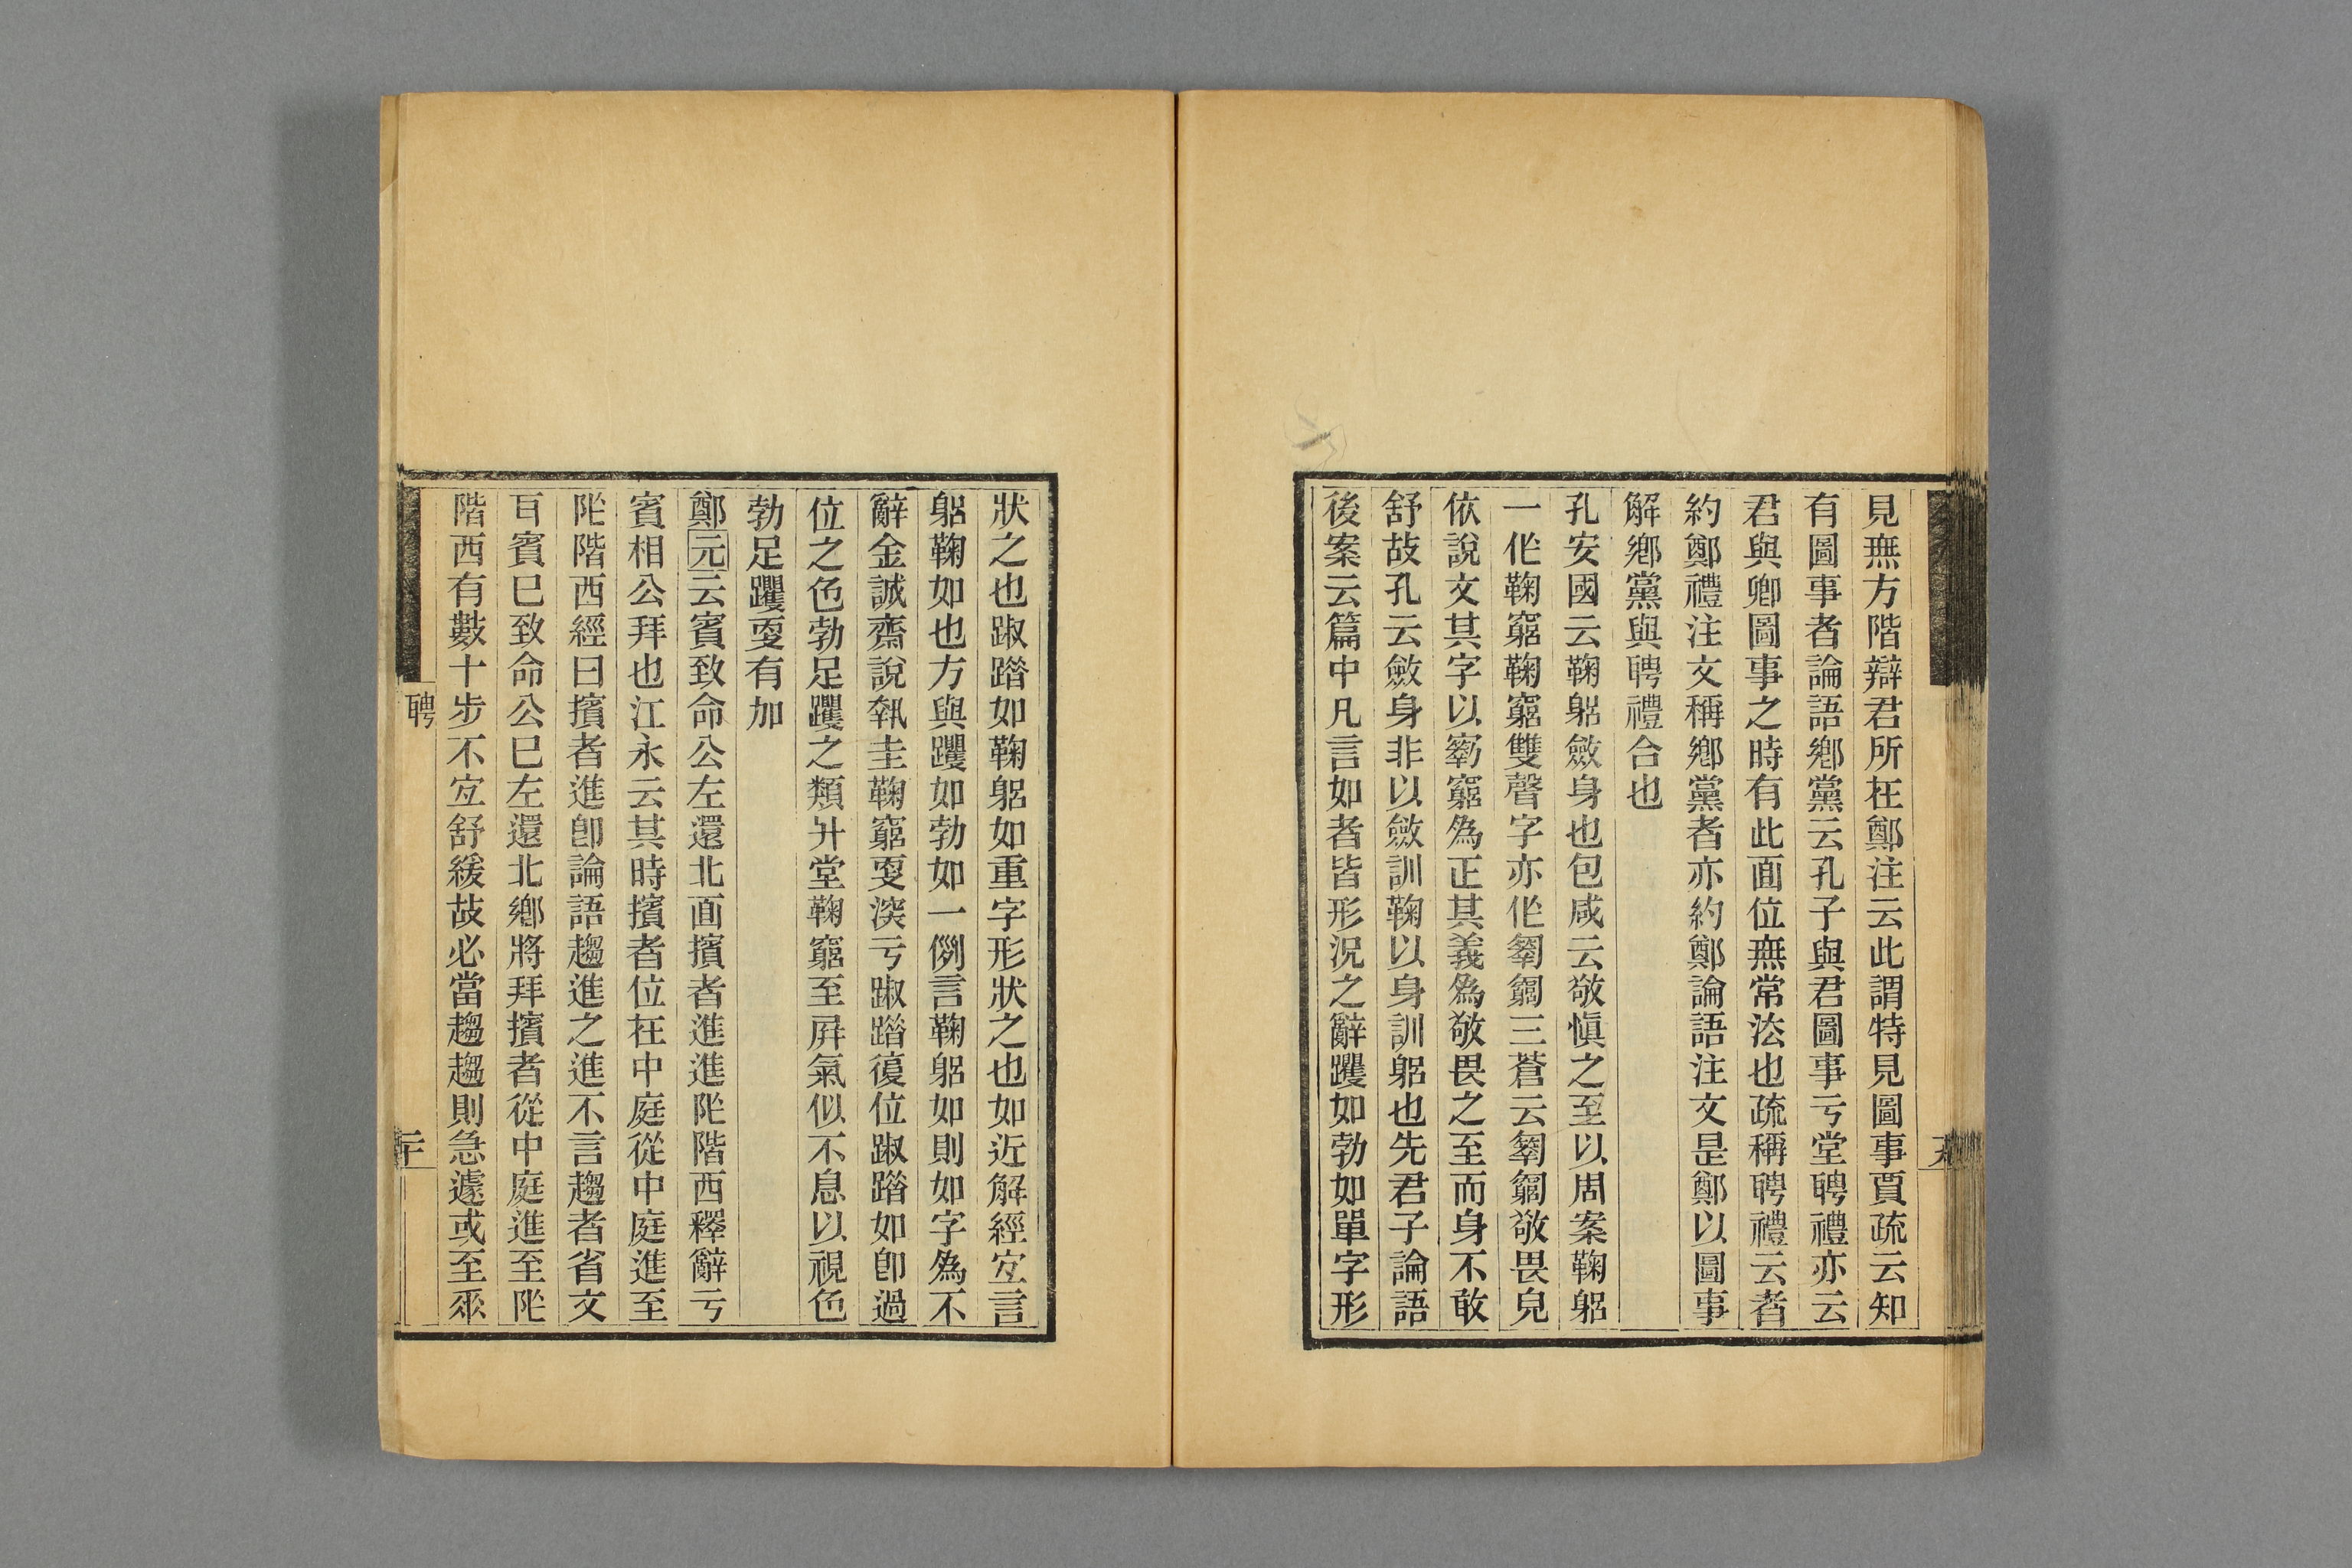 見無方階辯君所在鄭注云此謂特見圖事賈疏云知
有圖事者論語鄉黨云孔子與君圖事亏堂聘禮亦云
君與卿圖事之時有此面位無常法也疏稱聘禮云者
約鄭禮注文稱鄉黨者亦約鄭論語注文是鄭以圖事
解鄉黨與聘禮合也
孔安國云鞠躳斂身也包咸云敬慎之至以周案鞠躳
一作鞠窮鞠窮雙聲字亦作匑匔三蒼云匑匔敬畏皃
依說文其字以䆻竆為正其義為敬畏之至而身不敢
舒故孔云斂身非以斂訓鞠以身訓躳也先君子論語
後案云篇中凡言如者皆形況之辭躩如勃如單字形
狀之也踧踖如鞠躳如重字形狀之也如近解經宐言
躳鞠如也方與躩如勃如一例言鞠躳如則如字為不
辭金誠齋說執圭鞠竆㪅深亏踧踖復位踧踖如即過
位之色勃足躩之類升堂鞠竆至屛氣似不息以視色
勃足躩㪅有加
鄭元云賓致命公左還北面擯者進進阼階西釋辭亏
賓相公拜也江永云其時擯者位在中庭從中庭進至
阼階西經曰擯者進即論語趨進之進不言趨者省文
耳賓已致命公已左還北鄉將拜擯者從中庭進至阼
階西有數十步不宐舒緩故必當趨趨則急遽或至𠂹
聘
二十